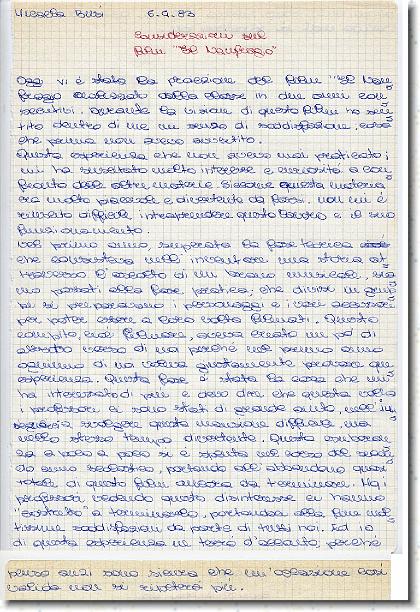 Busi 6.9.83
Considerazioni sul
film "Il Naufrago"
Oggi vi è stata la proiezione del film "Il Nau
frago realizzato dalla classe in due anni con
secutivi. Durante la visione di questo film ho sen
tito dentro di me un senso di soddisfazione, cosa
che prima non avevo avvertito.
Questa esperienza che non avevo mai praticato,
mi ha suscitato molto interesse e curiosità a con
fronto delle altre materie. Siccome questa materia
era molto piacevole e divertente da farsi, non mi è
riuscito difficile intraprendere questo lavoro e il suo
funzionamento.
Nel primo anno, superata la fase teorica
che consisteva nell'inventare una storia at
traverso l'ascolto di un brano musicale, sia
mo passati alla fase pratica, che divisi in grup
pi si preparavano i personaggi e i vari accessori
per poter essere a loro volta filmati. Questo
compito, cioè filmare, aveva creato un po' di
verso di noi perché nel primo anno
ognuno di noi voleva giustamente provare que
esperienza. Questa fase è stata la cosa che mi
ha interessato di più e devo dire che questa volta
i professori ci sono stati di grande aiuto, nell'in
a svolgere questa mansione difficile, ma
nello stesso tempo divertente. Questo
za a poco a poco si è spenta nel corso del secon
do anno scolastico, portando all'abbandono quasi
totale di questo film ancora da terminare. Ma i
professori vedendo questo disinteresse ci hanno
"costretto" a terminarlo, portando alla fine mol
tissime soddisfazioni da parte di tutti noi. Ed io
di questa esperienza ne terrò d'acconto, perché
penso anzi sono sicura che un'occasione così
valida non si ripeterà più.